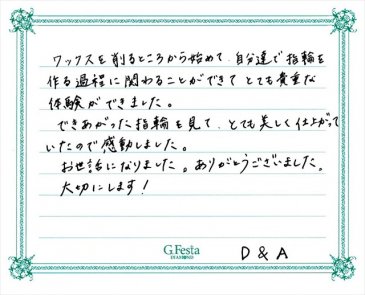 ワックスを削るところから始めて、自分達で指輪を
作る過程に関わることができてとても貴重な
体験ができました。
できあがった指輪を見て、とても美しく仕上がって
いたので感動しました。
お世話になりました。ありがとうございました。
大切にします！
G.Festa
DIAMOND
D & A